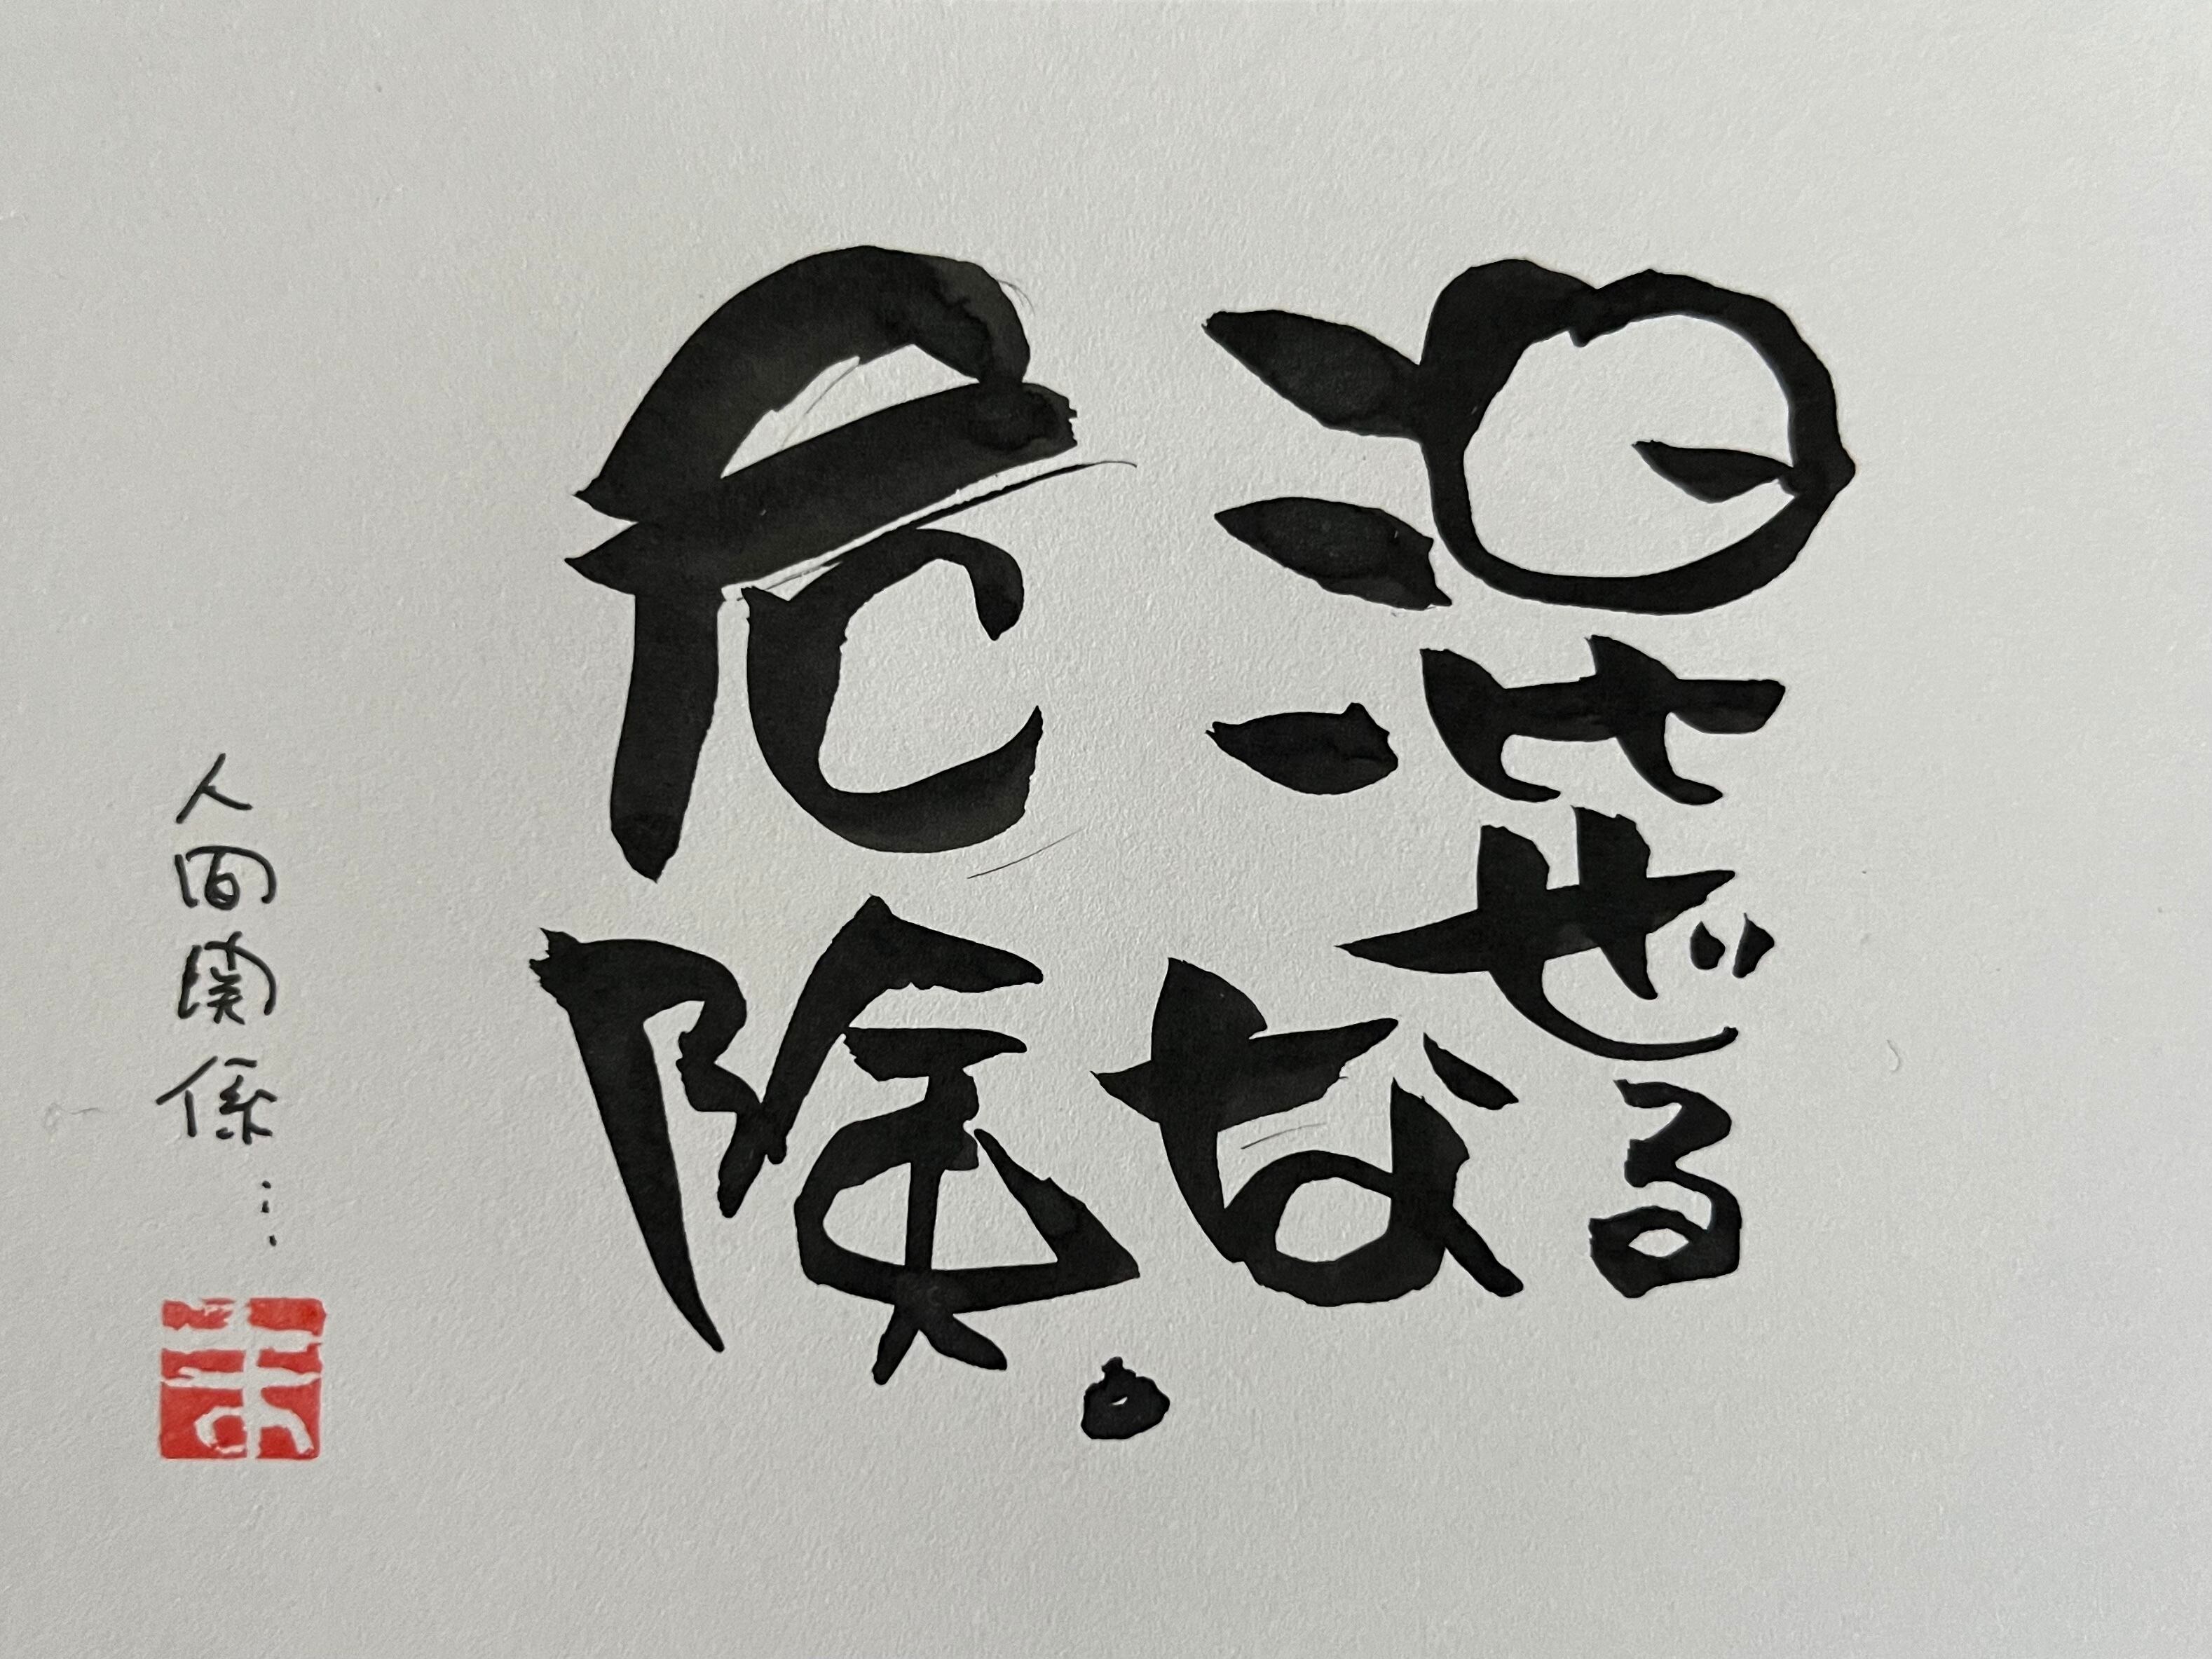 混ぜるな
危険。
人間関係…